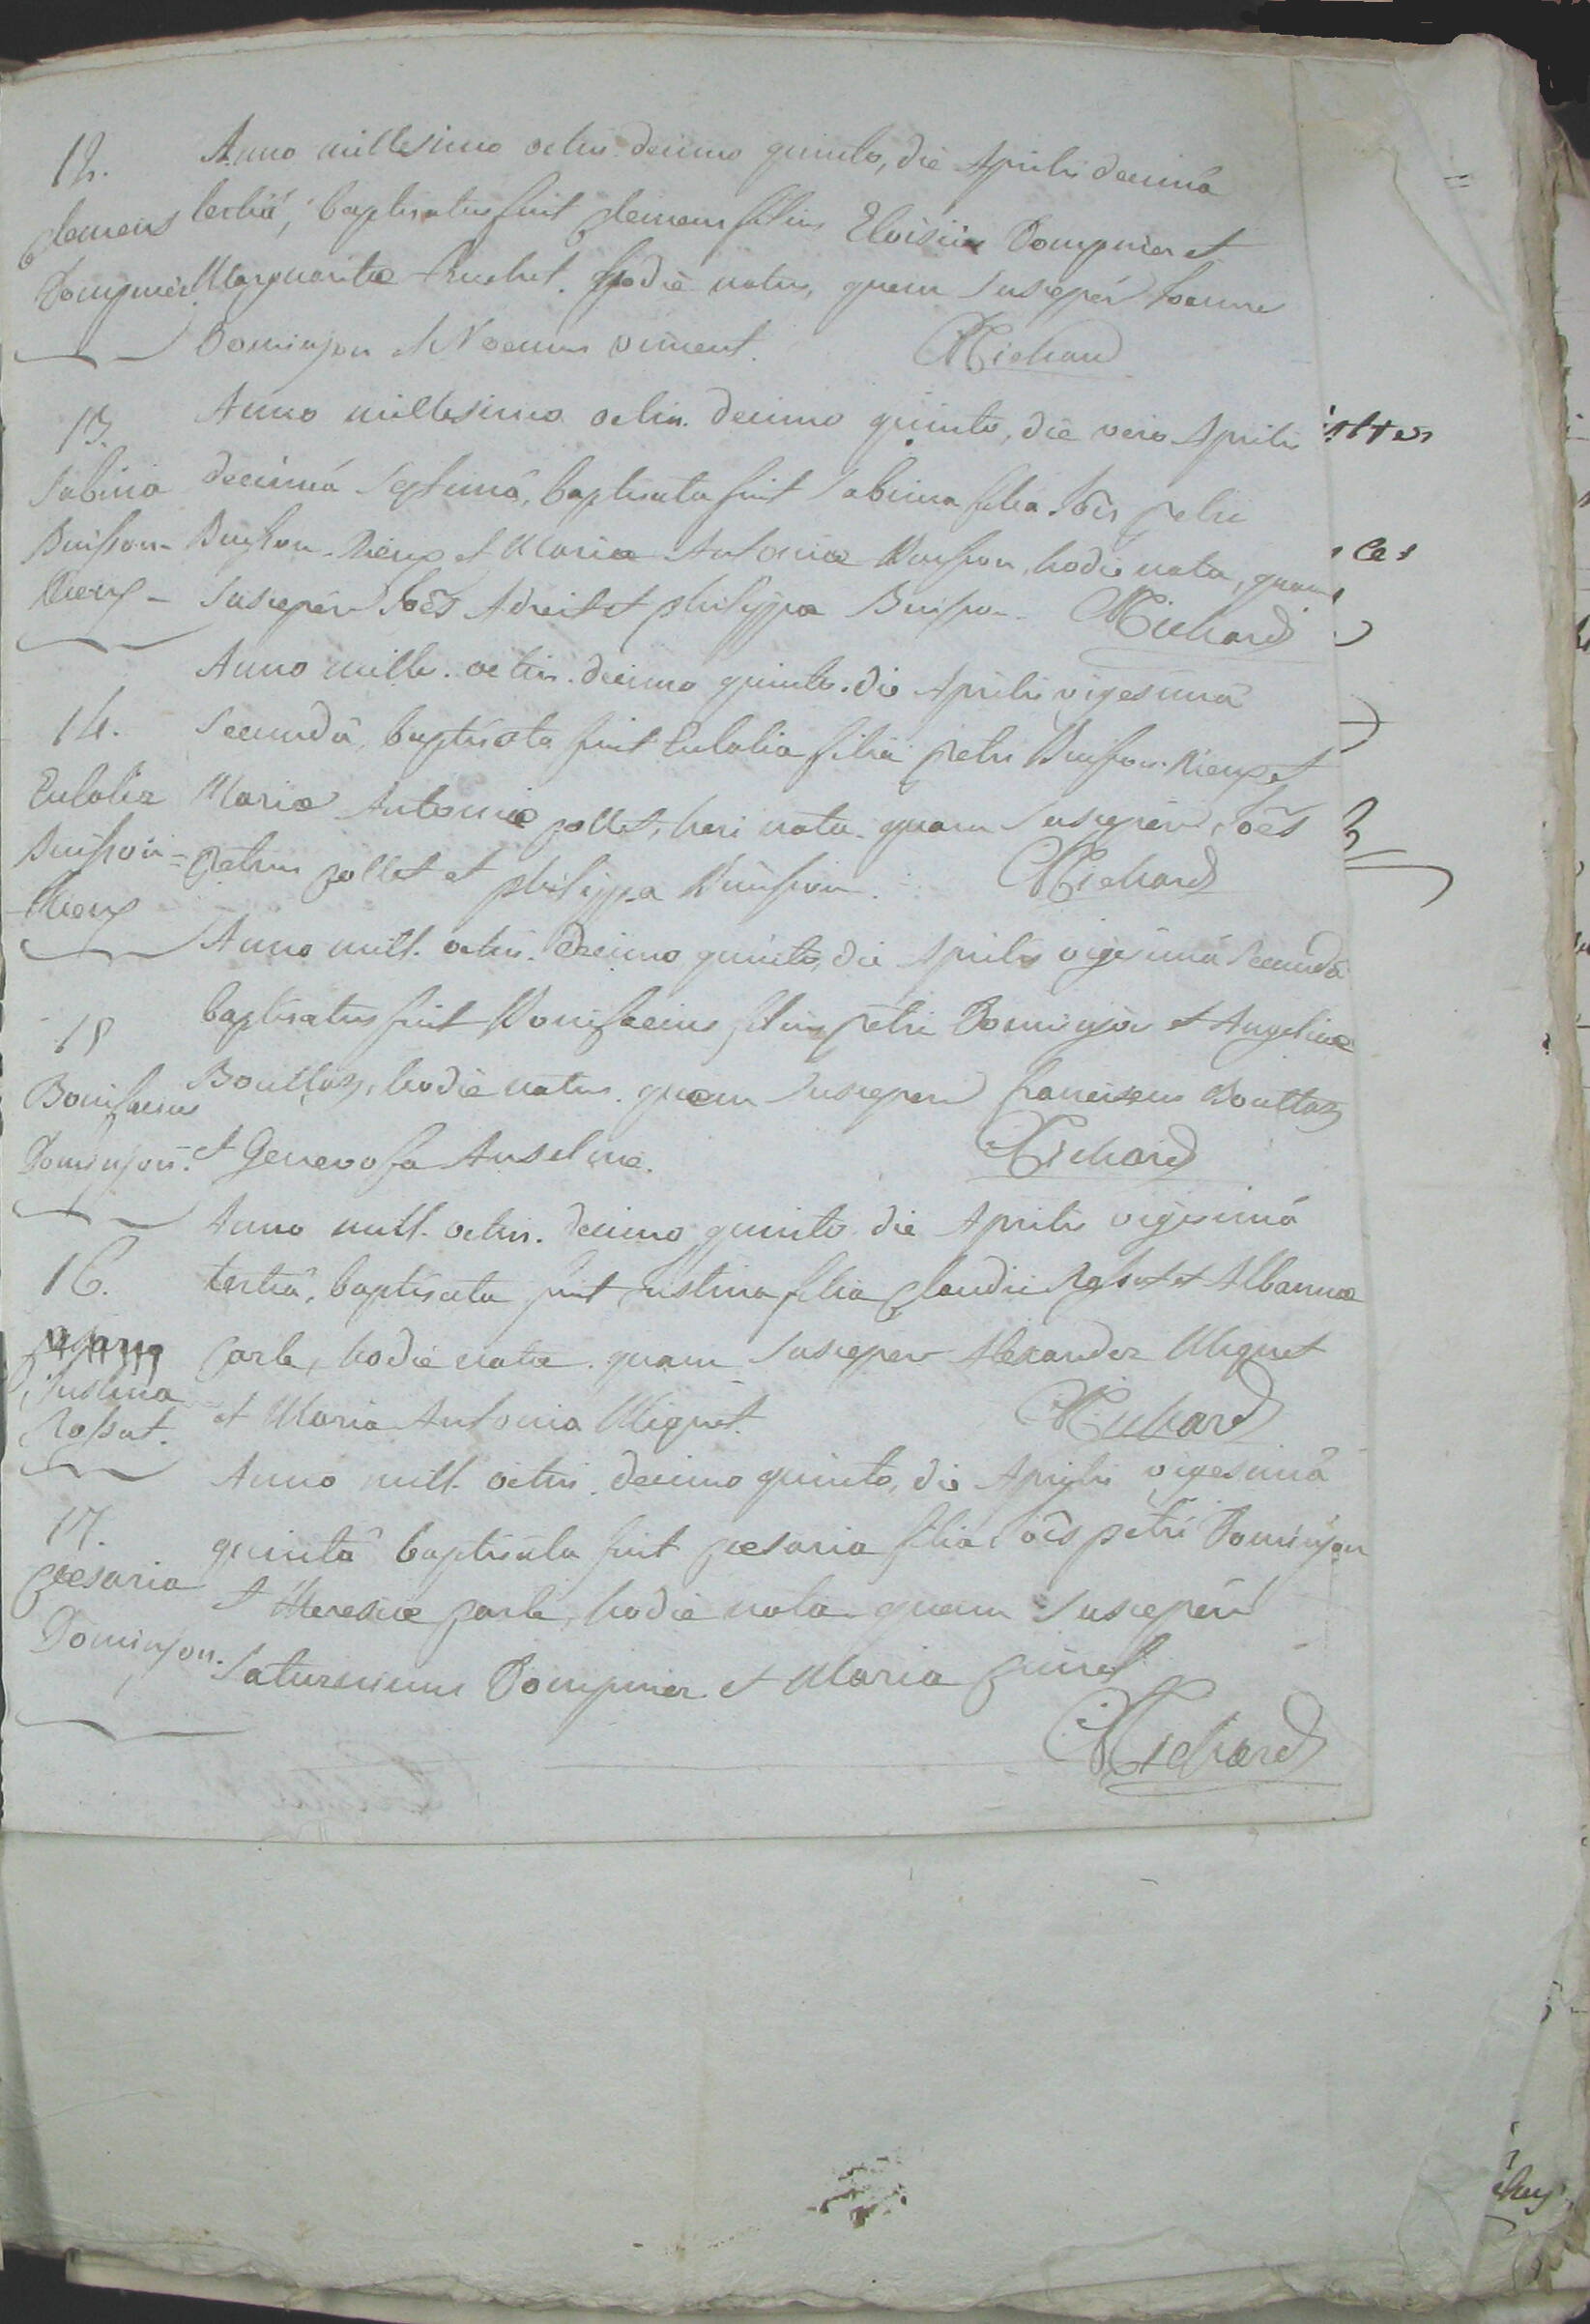 12.
Clemens
Dompnier.
Anno millesimo octin. decimo quinto, die Aprilis decimâ
tertiâ, baptisatus fuit Clemens filius Eloisii Dompnier et
Margaritæ Truchet. hodiè natus, quem susceper Joannes
Dominjon et Noemis viment. Richard
13.
Sabina
Buisson-
Rieux -
Anno millesimo octin. decimo quinto, die vero Aprilis
decimâ septimâ, baptisata fuit Sabina filia Jois petri
Buisson-Rieux et Mariæ Antoniæ Buisson, hodiè nata, quam
susceper Joes Adreit et philippa Buisson. Richard
14.
Eulalia
Buisson=
Rieux
Anno mille. octin. decimo quinto. die Aprilis vigesimâ
secundâ, baptisata fuit Eulalia filia petri Buisson-Rieux et
Mariæ Antoniæ pollet, heri nata. quam susceper Joês
petrus pollet et philippa Buisson. Richard
15
Bonifacius
Dominjon.
Anno mill. octin. decimo quinto, die Aprilis vigesimâ secundâ
baptisatus fuit Bonifacius filius petri Dominjon et Angelicæ
Bouttaz, hodiè natus. quem susceper franciscus Bouttaz
et Genevofa Anselme. Richard
16.
Justina
Rossat.
Anno mill. octin. decimo quinto die Aprilis vigesimâ
tertiâ, baptisata fuit Justina filia Claudii Rossat et Albannæ
Carle, hodiè nata. quam susceper Alexander Miguet
et Maria Antonia Miguet. Richard
17.
Cæsaria
Dominjon.
Anno mill. octin. decimo quinto, die Aprilis vigesimâ
quintâ baptisata fuit Cæsaria filia Jois petri Dominjon
et theresiæ Carle, hodiè nata quam susceper
Saturninus Dompnier et Maria
Richard